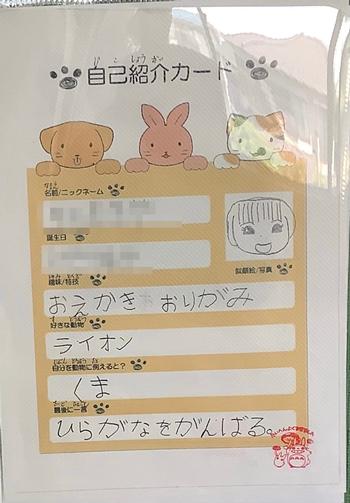 自己紹介カード
名前/ニックネーム
誕生日
似顔絵/写真
趣味/特技
おえかき おりがみ
好きな動物
ライオン
自分を動物に例えると?
くま
最後に一言
ひらがなをがんばる。